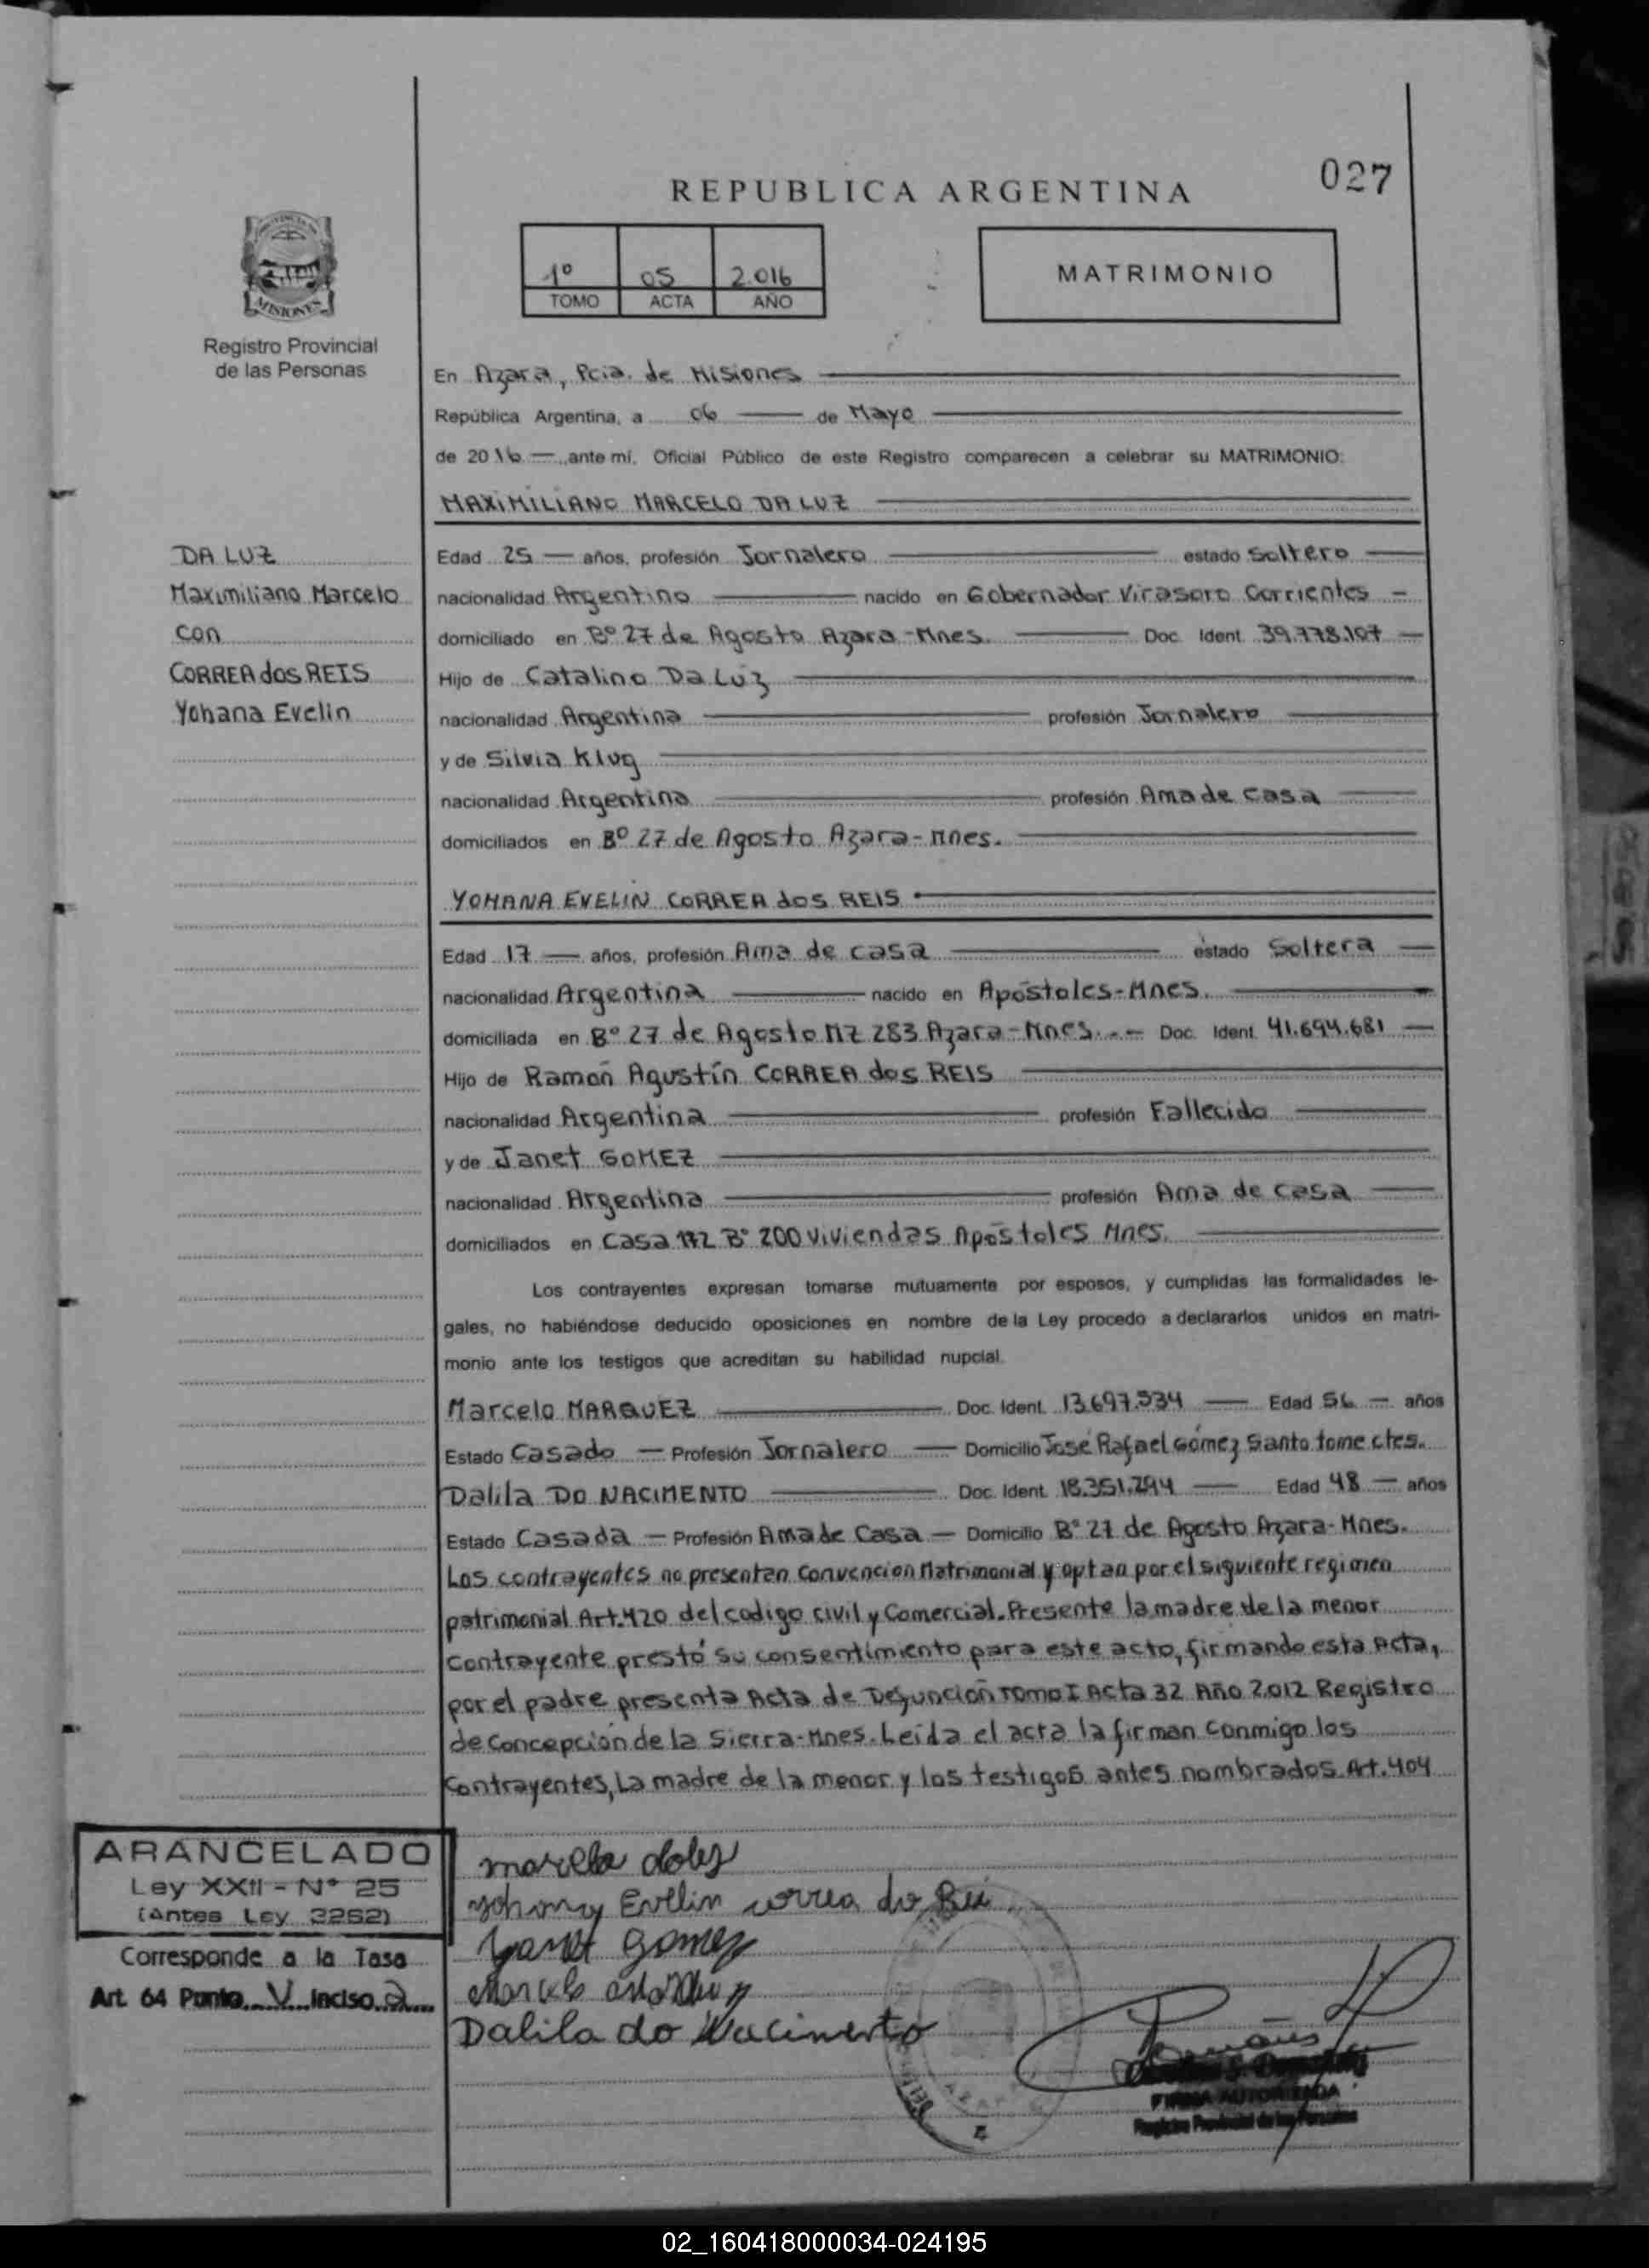 027
REPUBLICA ARGENTINA
1º 05 2.016
TOMO ACTA AÑO
MATRIMONIO
MISIONES
Registro Provincial
de las Personas
En Azara, Pcia. de Misiones
República Argentina, a 06 de Mayo
de 2016 ante mí, Oficial Público de este Registro comparecen a celebrar su MATRIMONIO:
MAXIMILIANO MARCELO DA LUZ
DA LUZ
Maximiliano Marcelo
con
CORREA dos REIS
Yohana Evelin
Edad 25 años, profesión Jornalero estado Soltero
nacionalidad Argentino nacido en Gobernador Virasoro Corrientes
domiciliado en Bº 27 de Agosto Azara-Mnes. Doc. Ident. 39.778.107
Hijo de Catalino Da Luz
nacionalidad Argentina profesión Jornalero
y de Silvia Klug
nacionalidad Argentina profesión Ama de casa
domiciliados en Bº 27 de Agosto Azara-Mnes.
YOHANA EVELIN CORREA dos REIS
Edad 17 años, profesión Ama de casa estado Soltera
nacionalidad Argentina nacido en Apóstoles-Mnes.
domiciliada en Bº 27 de Agosto MZ 283 Azara-Mnes. Doc. Ident. 41.694.681
Hijo de Ramón Agustín CORREA dos REIS
nacionalidad Argentina profesión Fallecido
y de Janet GOMEZ
nacionalidad Argentina profesión Ama de casa
domiciliados en Casa 172 Bº 200 Viviendas Apóstoles Mnes.
Los contrayentes expresan tomarse mutuamente por esposos, y cumplidas las formalidades le-
gales, no habiéndose deducido oposiciones en nombre de la Ley procedo a declararlos unidos en matri-
monio ante los testigos que acreditan su habilidad nupcial.
Marcelo MARQUEZ Doc. Ident. 13.697.534 Edad 56 años
Estado Casado Profesión Jornalero Domicilio José Rafael Gómez Santo tome ctes.
Dalila DO NACIMENTO Doc. Ident. 18.351.294 Edad 48 años
Estado Casada Profesión Ama de Casa Domicilio Bº 27 de Agosto Azara-Mnes.
Los contrayentes no presentan Convencion Matrimonial y optan por el siguiente regimen
patrimonial Art.420 del codigo civil y Comercial. Presente la madre de la menor
contrayente prestó su consentimiento para este acto, firmando esta Acta,
por el padre presenta Acta de Defunción Tomo I Acta 32 Año 2.012 Registro
de Concepción de la Sierra-Mnes. Leída el acta la firman conmigo los
contrayentes, La madre de la menor y los testigos antes nombrados. Art.404
ARANCELADO
Ley XXII - Nº 25
(Antes Ley 2262)
Corresponde a la Tasa
Art. 64 Punto V Inciso
Evelin correa do
Yanet gomez
Dalila do Nacimento
FIRMA AUTORIZADA
Registro Provincial de las Personas
02_160418000034-024195